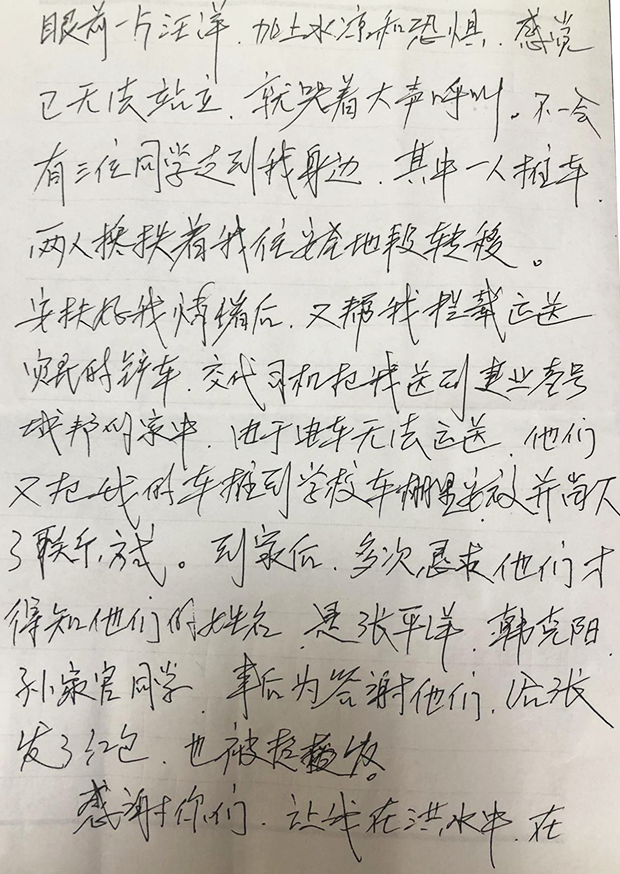 眼前一片汪洋，加上水凉和恐惧，感觉
已无法站立，就哭着大声呼叫。不一会
有三位同学走到我身边，其中一人推车，
两人搀扶着我往安全地段转移。
安抚好我情绪后，又帮我拦截运送
灾民的铲车，交代司机把我送到建业壹号
城邦的家中，由于电车无法运送，他们
又把我的车推到学校车棚里安放并留下
了联系方式。到家后，多次恳求他们才
得知他们的姓名，是张平洋，韩克阳，
孙家官同学，事后为答谢他们，给张
发了红包，也被拒
感谢你们，让我在洪水中，在